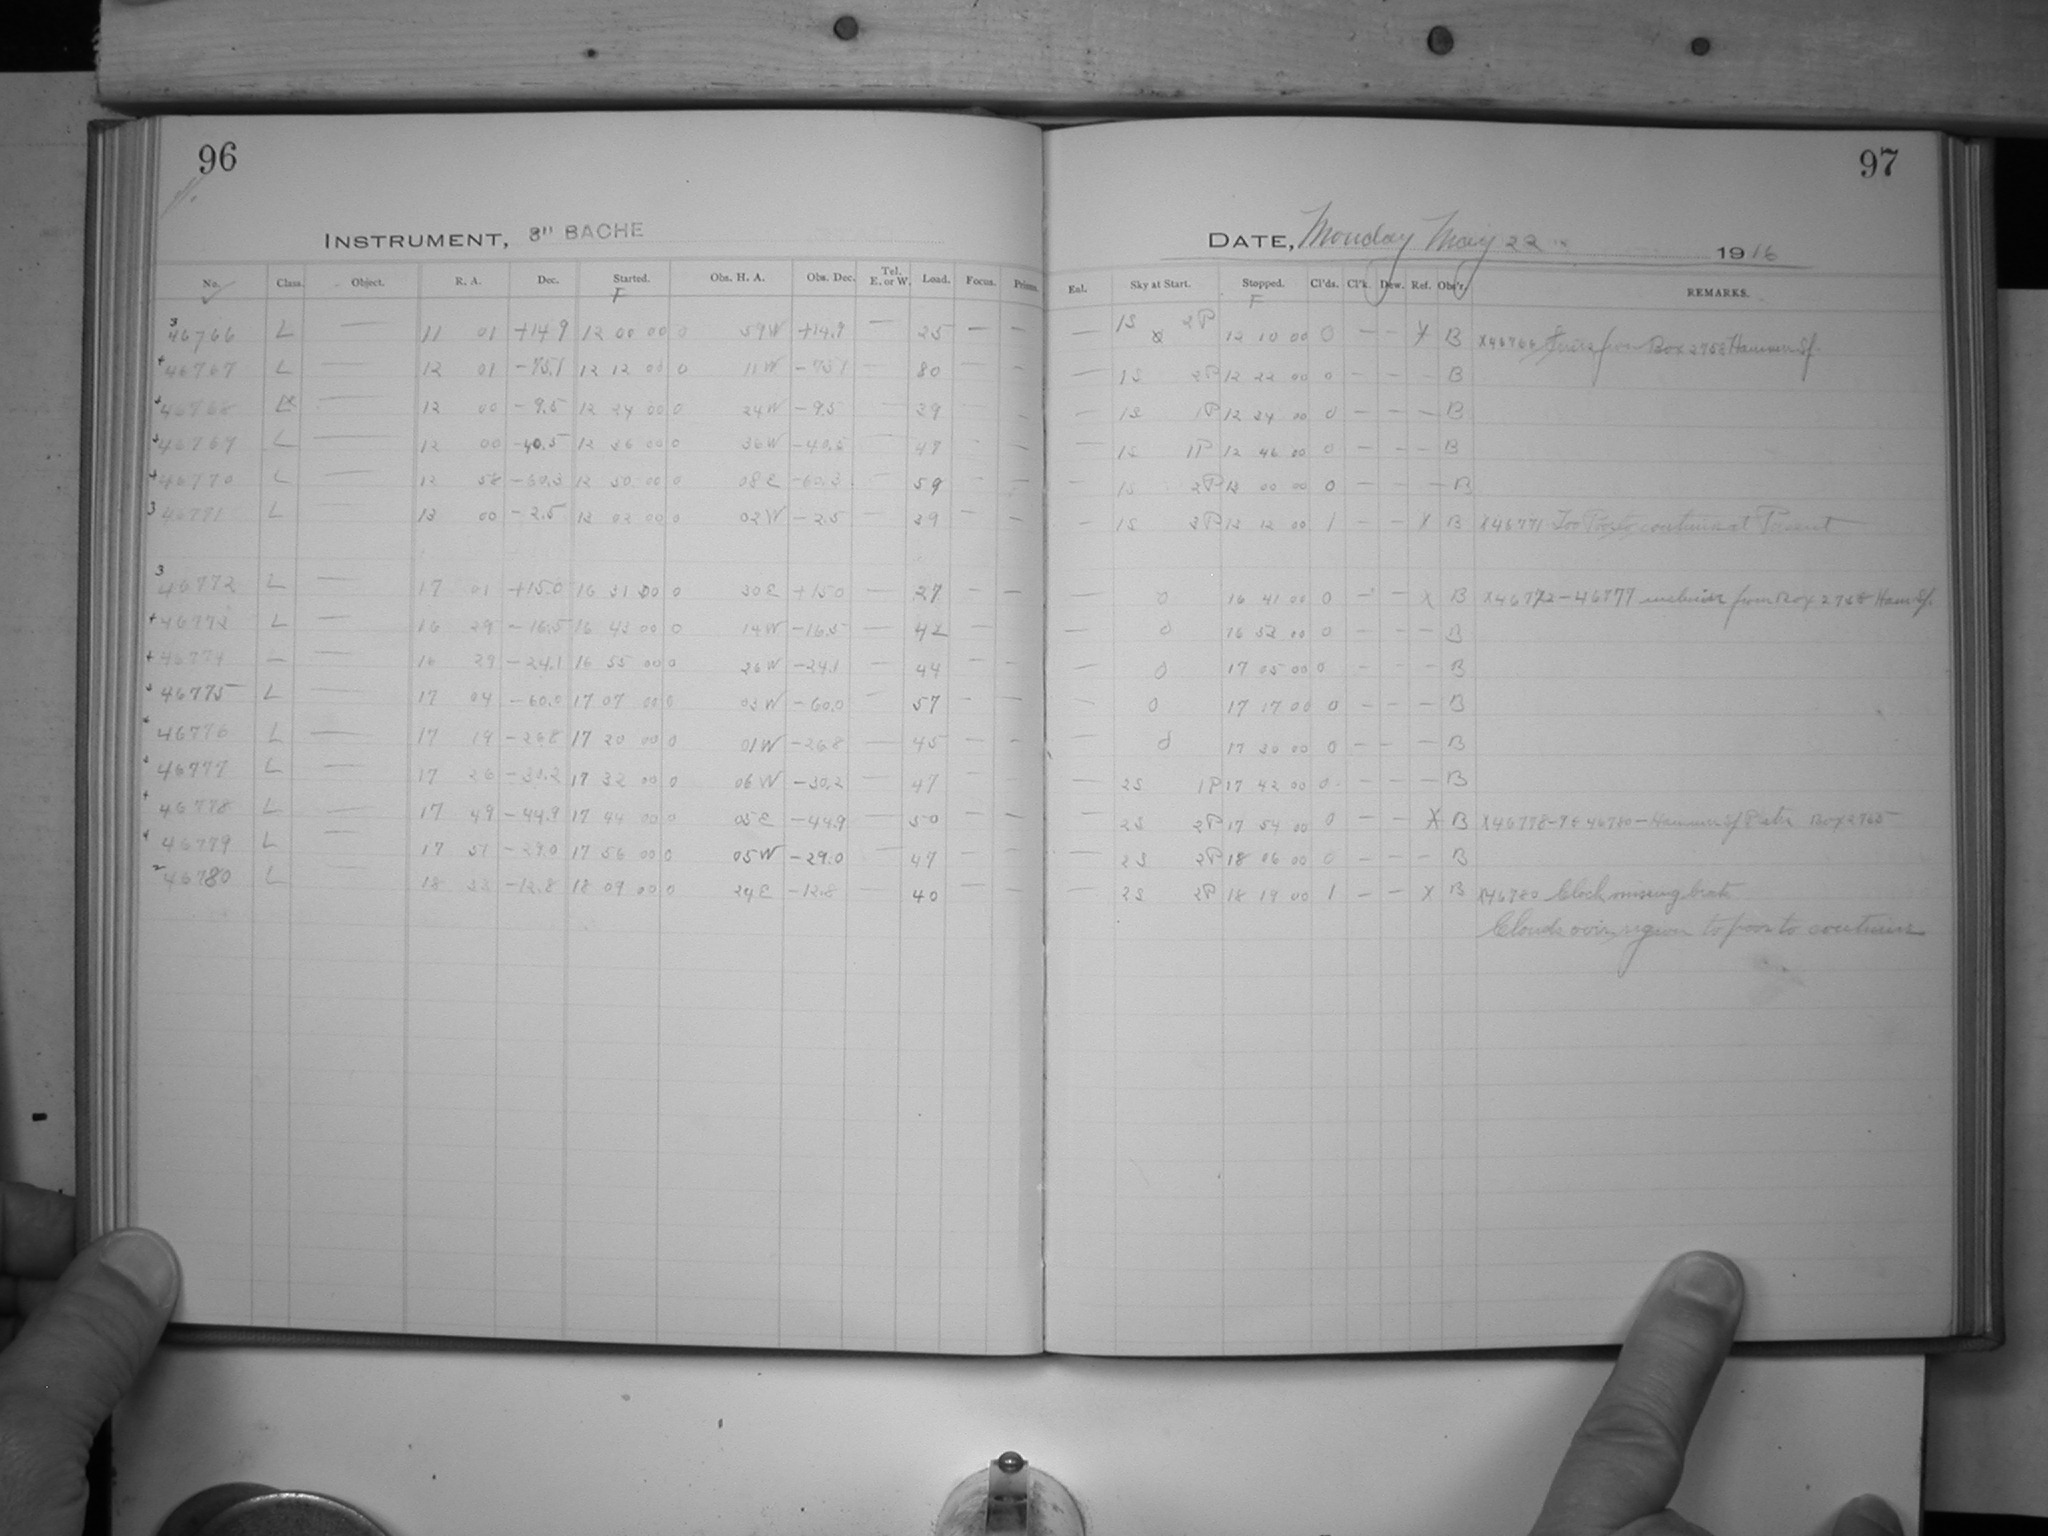 96
97
INSTRUMENT, 8" BACHE
DATE, Monday May 22 1916
No. Class. Object. R. A. Dec. Started. Obs. H. A. Obs. Dec. Tel. E. or W. Load. Focus. Prisms. Eal. Sky at Start. Stopped. Cl'ds. Cl'k. Dew. Ref. Obs'r. REMARKS.
F F
3 46766 L — 11 01 +14.9 12 00 00 0 59W +14.9 — 25 — — — 1S 2P 12 10 00 0 — — X B X46766 from Box 2758 Hammer Sf.
46767 L — 12 01 -75.1 12 12 00 0 11W -75.1 — 80 — — — 1S 2P 12 22 00 0 — — — B
46768 L — 12 00 -9.5 12 24 00 0 24W -9.5 — 39 — — — 1S 1P 12 34 00 0 — — — B
46769 L — 12 00 -40.5 12 36 00 0 36W -40.5 — 47 — — — 1S 1P 12 46 00 0 — — — B
46770 L — 12 58 -60.3 12 50 00 0 08E -60.3 — 59 — — — 1S 2P 13 00 00 0 — — — B
3 46771 L — 13 00 -2.5 13 02 00 0 02W -2.5 — 39 — — — 1S 3P 13 12 00 1 — — X B X46771 Too Poor to continue at Present
3 46772 L — 17 01 +15.0 16 31 00 0 30E +15.0 — 27 — — 0 16 41 00 0 — — X B X46772-46777 inclusive from Box 2758 Ham Sf.
46773 L — 16 29 -16.5 16 43 00 0 14W -16.5 — 42 — — — 0 16 53 00 0 — — — B
46774 L — 16 29 -24.1 16 55 00 0 26W -24.1 — 44 — — — 0 17 05 00 0 — — — B
46775 L — 17 04 -60.0 17 07 00 0 03W -60.0 — 57 — — — 0 17 17 00 0 — — — B
46776 L — 17 19 -26.8 17 20 00 0 01W -26.8 — 45 — — — 0 17 30 00 0 — — — B
46777 L — 17 26 -30.2 17 32 00 0 06W -30.2 — 47 — — — 2S 1P 17 42 00 0 — — — B
46778 L — 17 49 -44.9 17 44 00 0 05E -44.9 — 50 — — — 2S 2P 17 54 00 0 — — X B X46778-79 46780 - Hammer Sf Plates Box 2765
46779 L — 17 51 -29.0 17 56 00 0 05W -29.0 — 47 — — — 2S 2P 18 06 00 0 — — — B
2 46780 L — 18 33 -12.8 18 09 00 0 24E -12.8 — 40 — — — 2S 2P 18 19 00 1 — — X B X46780 Clock missing beats
Clouds over region to poor to continue